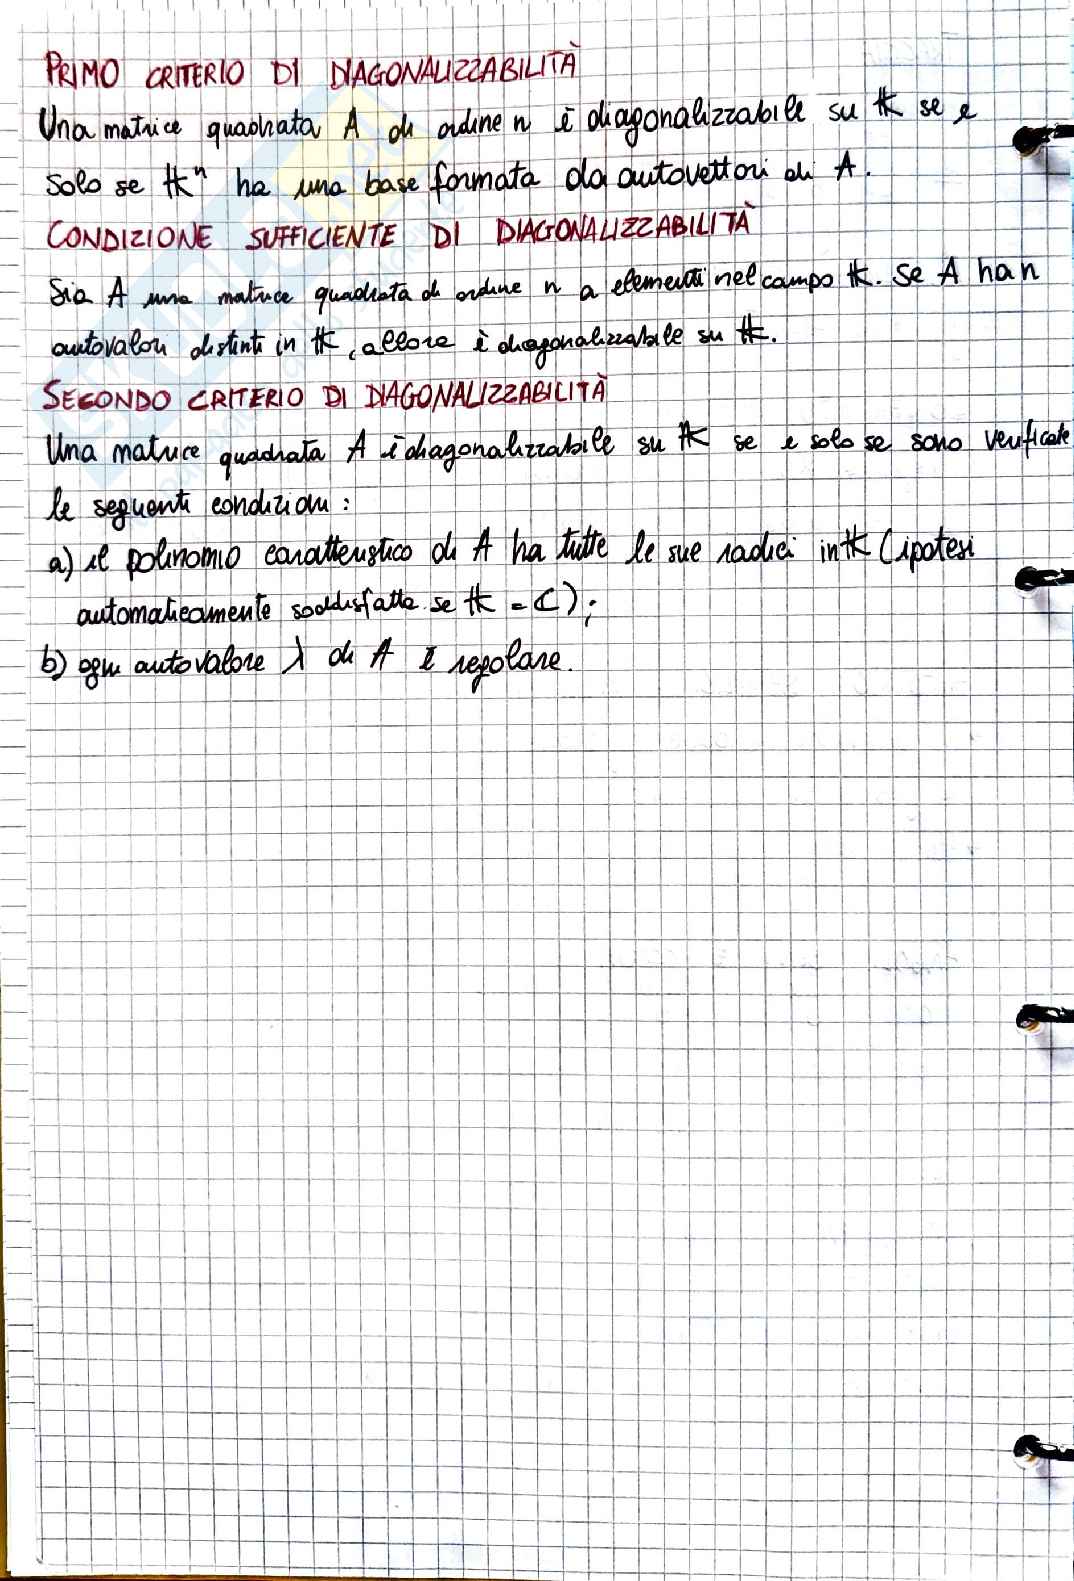 PRIMO CRITERIO DI DIAGONALIZZABILITÀ
Una matrice quadrata A di ordine n è diagonalizzabile su 𝕂 se e
solo se 𝕂ⁿ ha una base formata da autovettori di A.
CONDIZIONE SUFFICIENTE DI DIAGONALIZZABILITÀ
Sia A una matrice quadrata di ordine n a elementi nel campo 𝕂. Se A ha n
autovalori distinti in 𝕂, allora è diagonalizzabile su 𝕂.
SECONDO CRITERIO DI DIAGONALIZZABILITÀ
Una matrice quadrata A è diagonalizzabile su 𝕂 se e solo se sono verificate
le seguenti condizioni:
a) il polinomio caratteristico di A ha tutte le sue radici in 𝕂 (ipotesi
automaticamente soddisfatta se 𝕂 = ℂ);
b) ogni autovalore λ di A è regolare.